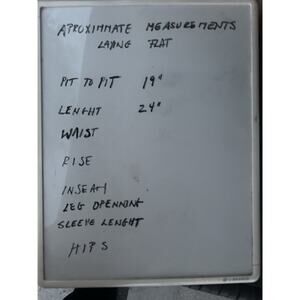 APROXIMMATE MEASUREMENTS
LAYING FLAT
PIT TO PIT 19"
LENGHT 24"
WAIST
RISE
INSEAM
LEG OPENNING
SLEEVE LENGHT
HIPS